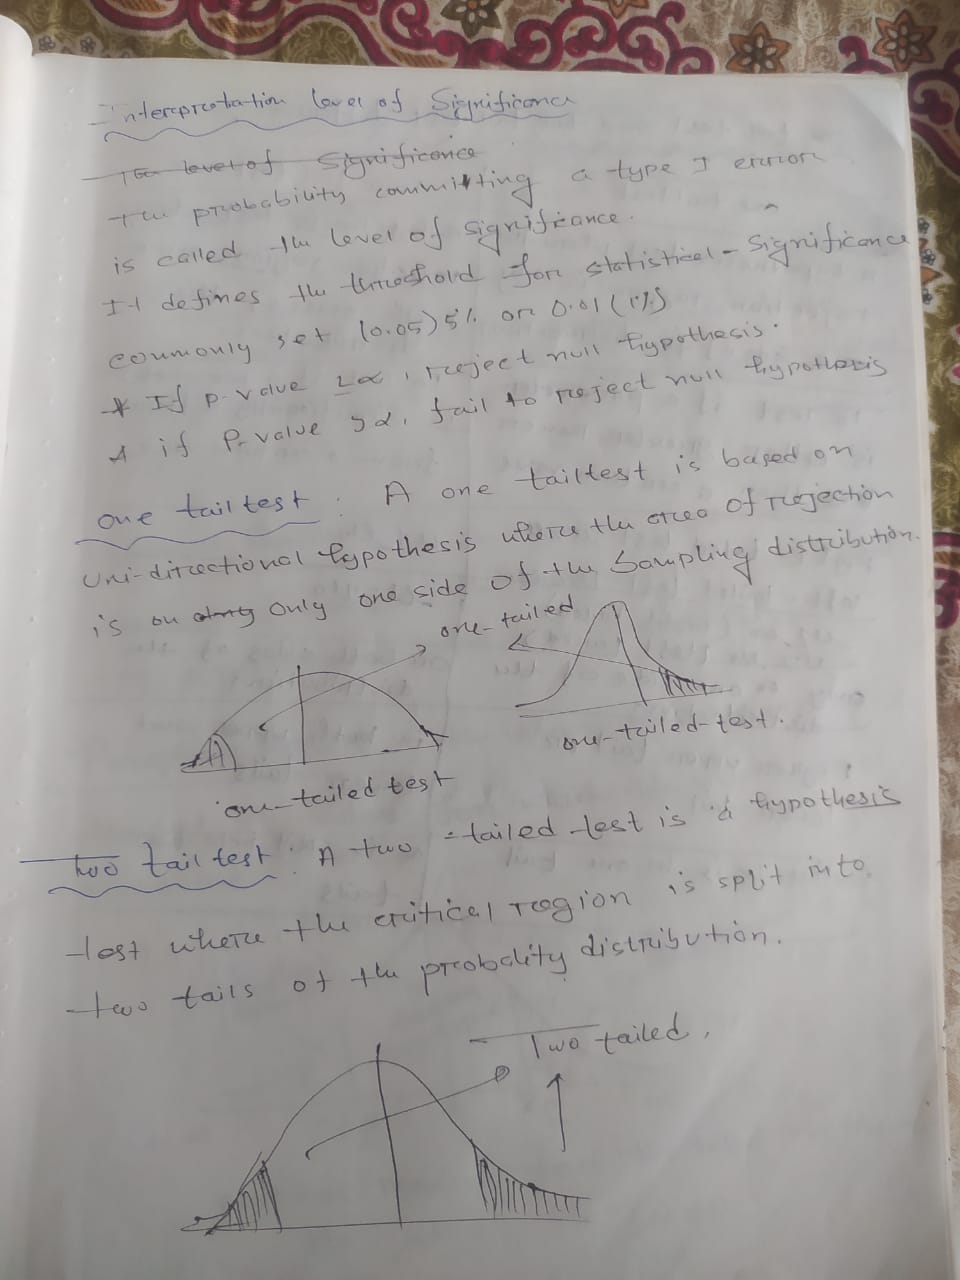 Interpretation level of Significance
The level of Significance
the probability committing a type I error
is called the level of significance.
It defines the threshold for statistical - Significance
commonly set (0.05) 5% or 0.01 (1%)
* If p-value ≤α, reject null hypothesis.
* if P-value >α, fail to reject null hypothesis
one tail test : A one tailtest is based on
Uni-directional hypothesis where the area of rejection
is on only one side of the Sampling distribution.
one-tailed
one-tailed-test.
one-tailed test
Two tail test : A two -tailed test is a hypothesis
test where the critical region is split into
two tails of the probality distribution.
Two tailed.